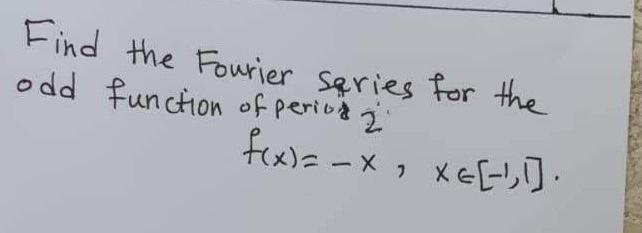 Find the Fourier series for the
odd function of period 2
f(x) = - x , x ∈ [-1,1].